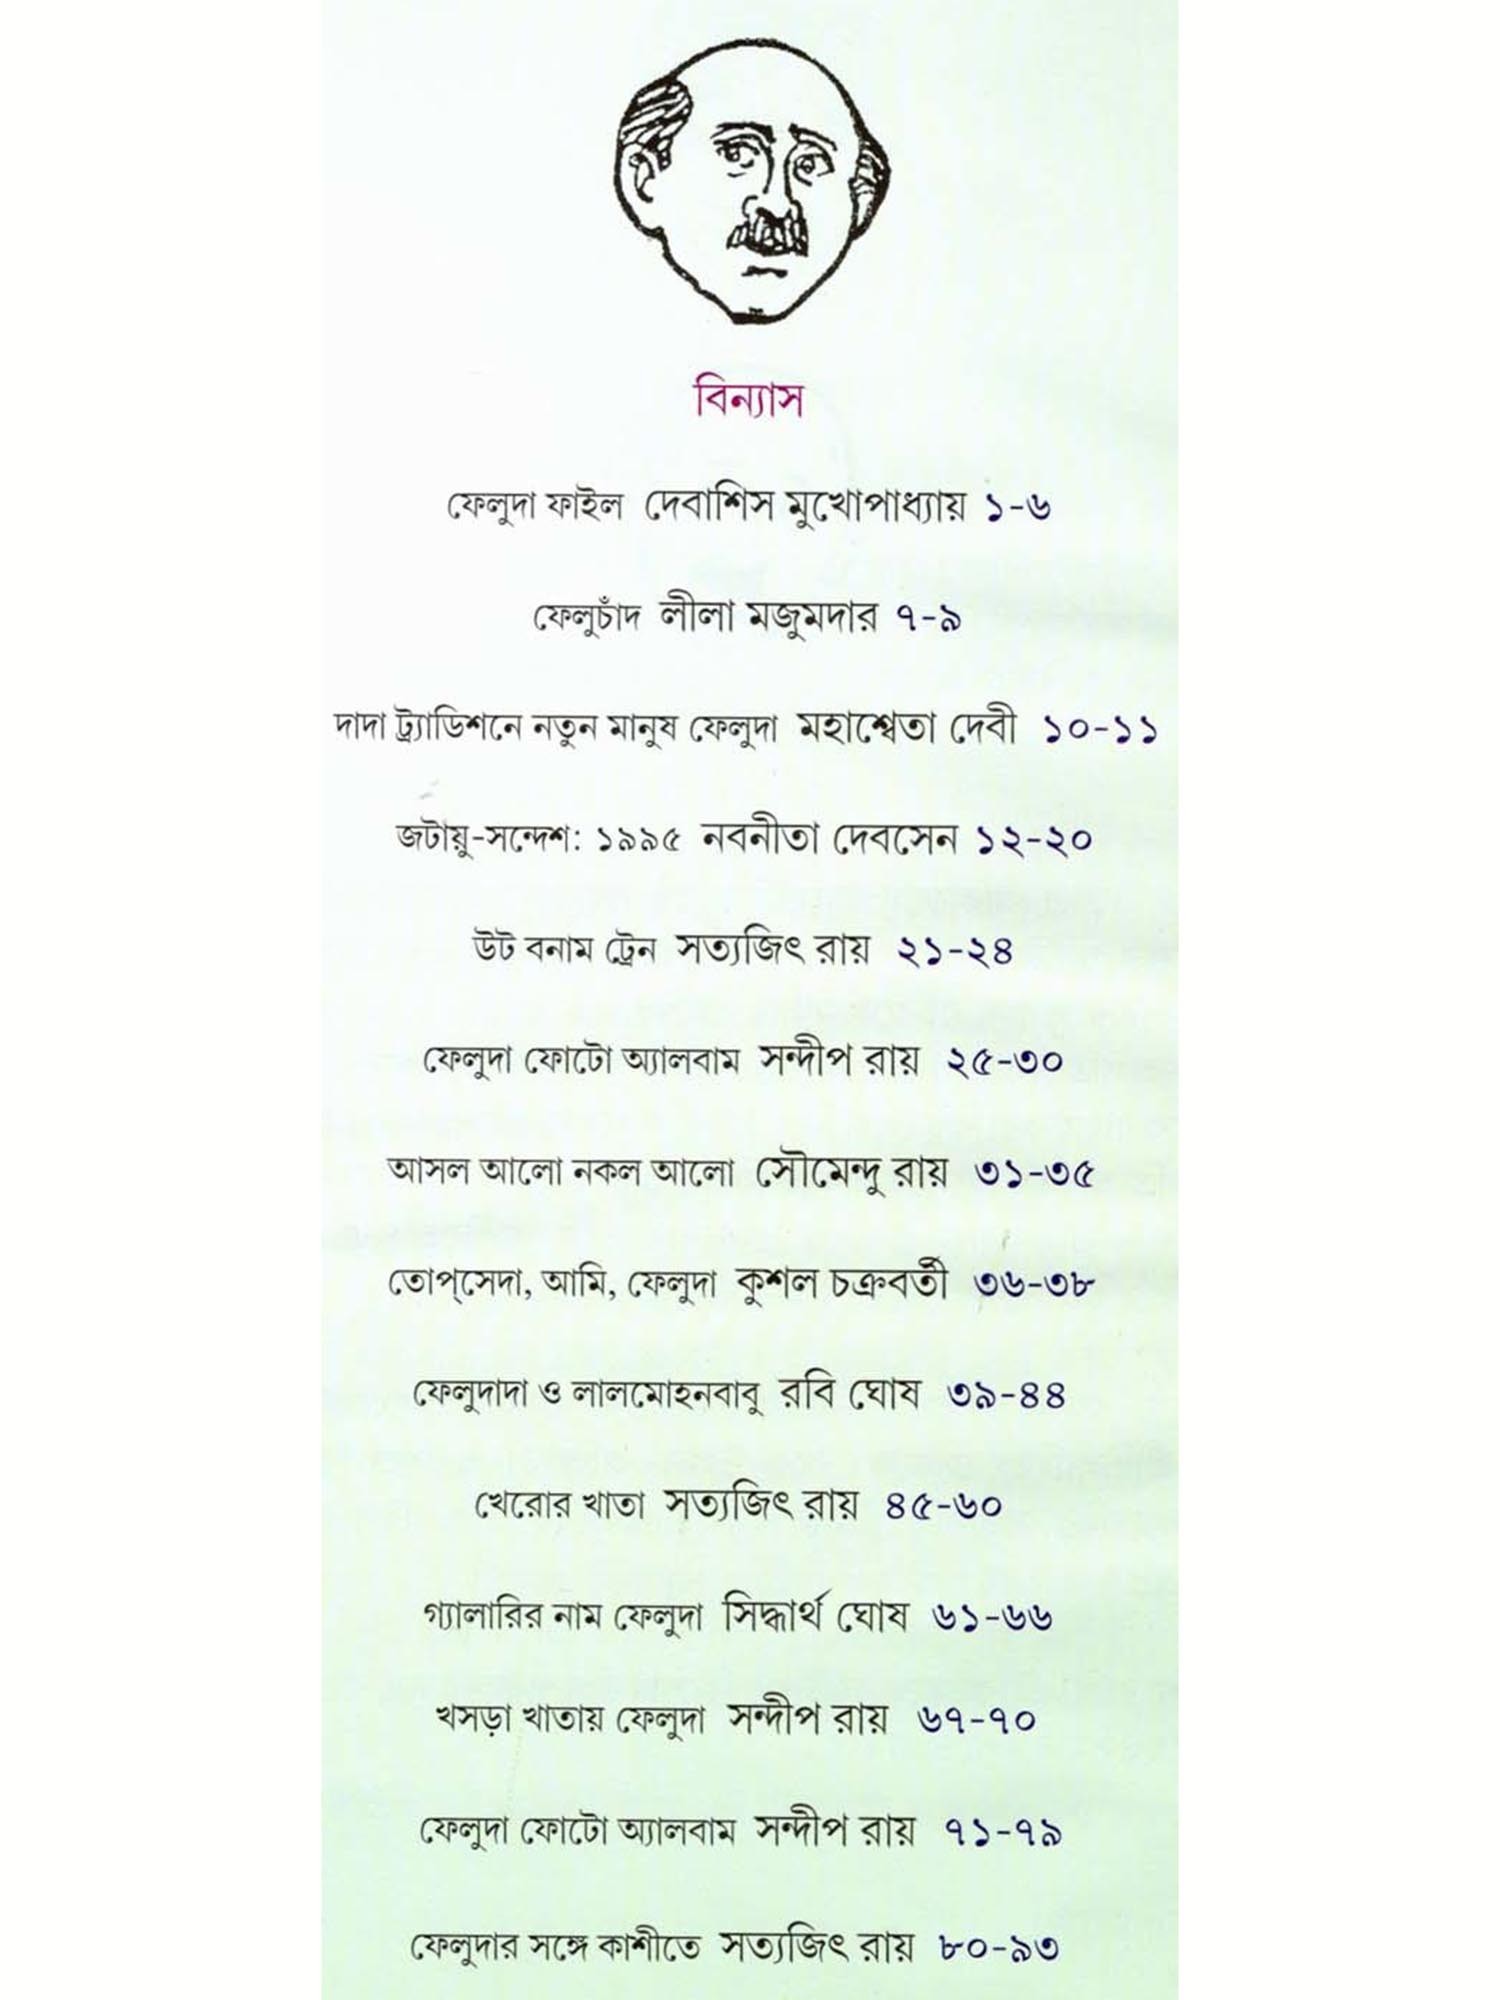 বিন্যাস
ফেলুদা ফাইল দেবাশিস মুখোপাধ্যায় ১-৬
ফেলুচাঁদ লীলা মজুমদার ৭-৯
দাদা ট্র্যাডিশনে নতুন মানুষ ফেলুদা মহাশ্বেতা দেবী ১০-১১
জটায়ু-সন্দেশ: ১৯৯৫ নবনীতা দেবসেন ১২-২০
উট বনাম ট্রেন সত্যজিৎ রায় ২১-২৪
ফেলুদা ফোটো অ্যালবাম সন্দীপ রায় ২৫-৩০
আসল আলো নকল আলো সৌমেন্দু রায় ৩১-৩৫
তোপ্‌সেদা, আমি, ফেলুদা কুশল চক্রবর্তী ৩৬-৩৮
ফেলুদাদা ও লালমোহনবাবু রবি ঘোষ ৩৯-৪৪
খেরোর খাতা সত্যজিৎ রায় ৪৫-৬০
গ্যালারির নাম ফেলুদা সিদ্ধার্থ ঘোষ ৬১-৬৬
খসড়া খাতায় ফেলুদা সন্দীপ রায় ৬৭-৭০
ফেলুদা ফোটো অ্যালবাম সন্দীপ রায় ৭১-৭৯
ফেলুদার সঙ্গে কাশীতে সত্যজিৎ রায় ৮০-৯৩